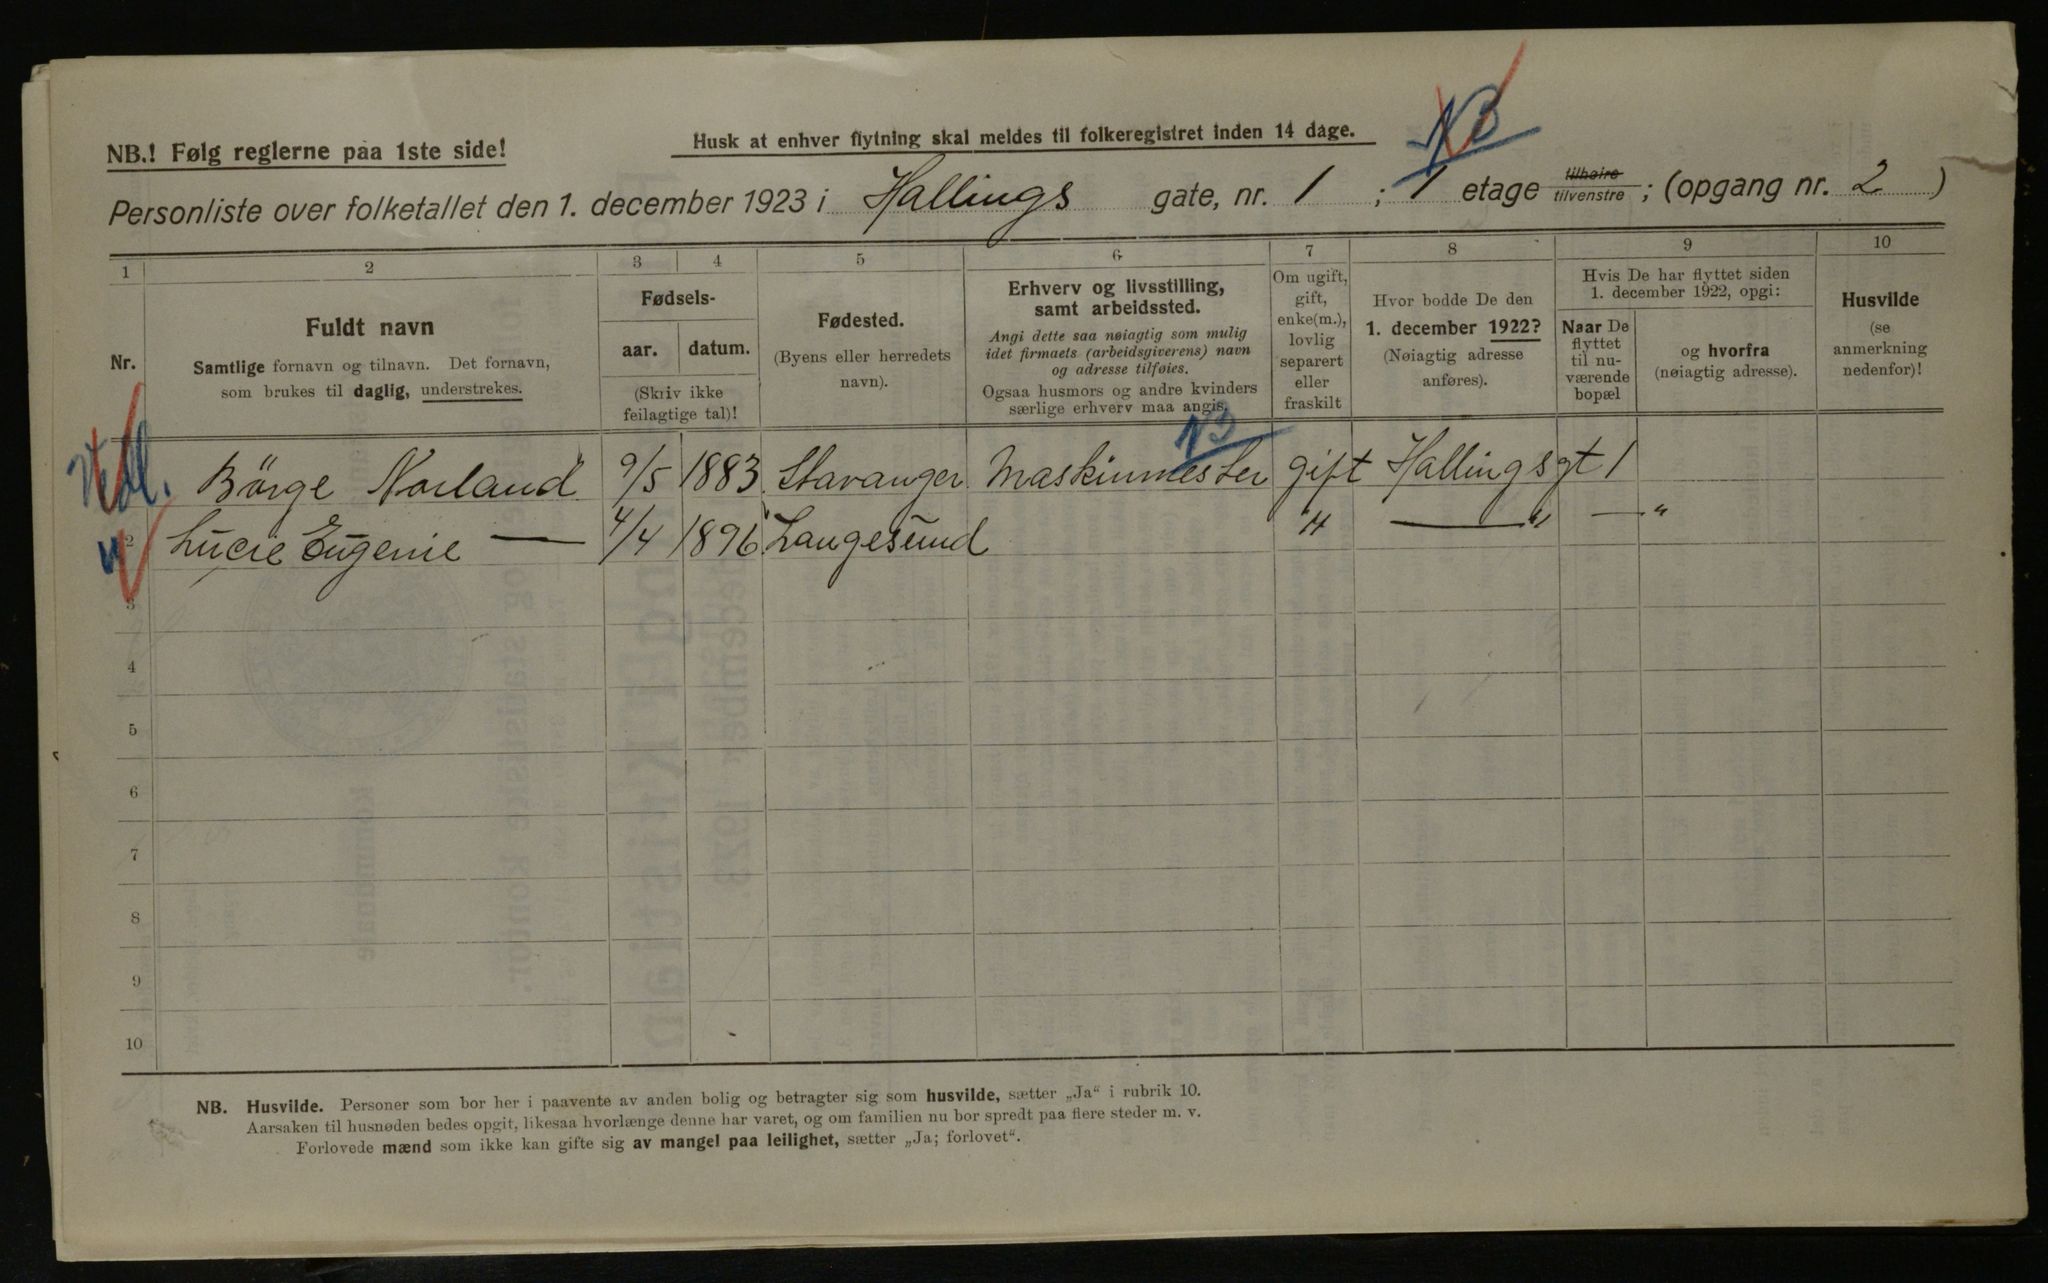 NB.! Følg reglerne paa 1ste side!
Husk at enhver flytning skal meldes til folkeregistret inden 14 dage.
NB
Personliste over folketallet den 1. december 1923 i Hallings gate, nr. 1 ; 1 etage tilhøire tilvenstre ; (opgang nr. 2 )
1 2 3 4 5 6 7 8 9 10
Nr.
Fuldt navn
Samtlige fornavn og tilnavn. Det fornavn,
som brukes til daglig, understrekes.
Fødsels-
aar. datum.
(Skriv ikke
feilagtige tal)!
Fødested.
(Byens eller herredets
navn).
Erhverv og livsstilling,
samt arbeidssted.
Angi dette saa nøiagtig som mulig
idet firmaets (arbeidsgiverens) navn
og adresse tilføies.
Ogsaa husmors og andre kvinders
særlige erhverv maa angis.
Om ugift,
gift,
enke(m.),
lovlig
separert
eller
fraskilt
Hvor bodde De den
1. december 1922?
(Nøiagtig adresse
anføres).
Hvis De har flyttet siden
1. december 1922, opgi:
Naar De
flyttet
til nu-
værende
bopæl
og hvorfra
(nøiagtig adresse).
Husvilde
(se
anmerkning
nedenfor)!
NB
Börge Norland 9/5 1883 Stavanger Maskinmester gift Hallingsgt 1
2 Lucie Eugenie — 4/4 1896 Langesund " — " — "
3
4
5
6
7
8
9
10
NB. Husvilde. Personer som bor her i paavente av anden bolig og betragter sig som husvilde, sætter „Ja“ i rubrik 10.
Aarsaken til husnøden bedes opgit, likesaa hvorlænge denne har varet, og om familien nu bor spredt paa flere steder m. v.
Forlovede mænd som ikke kan gifte sig av mangel paa leilighet, sætter „Ja; forlovet“.